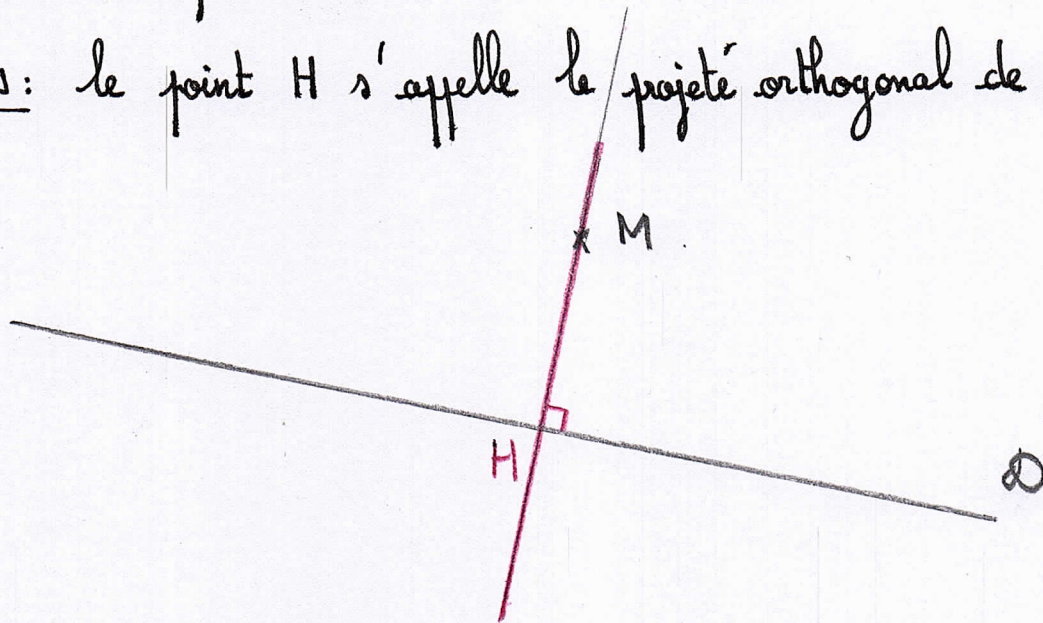 s: le point H s'appelle le projeté orthogonal de
M
H
D